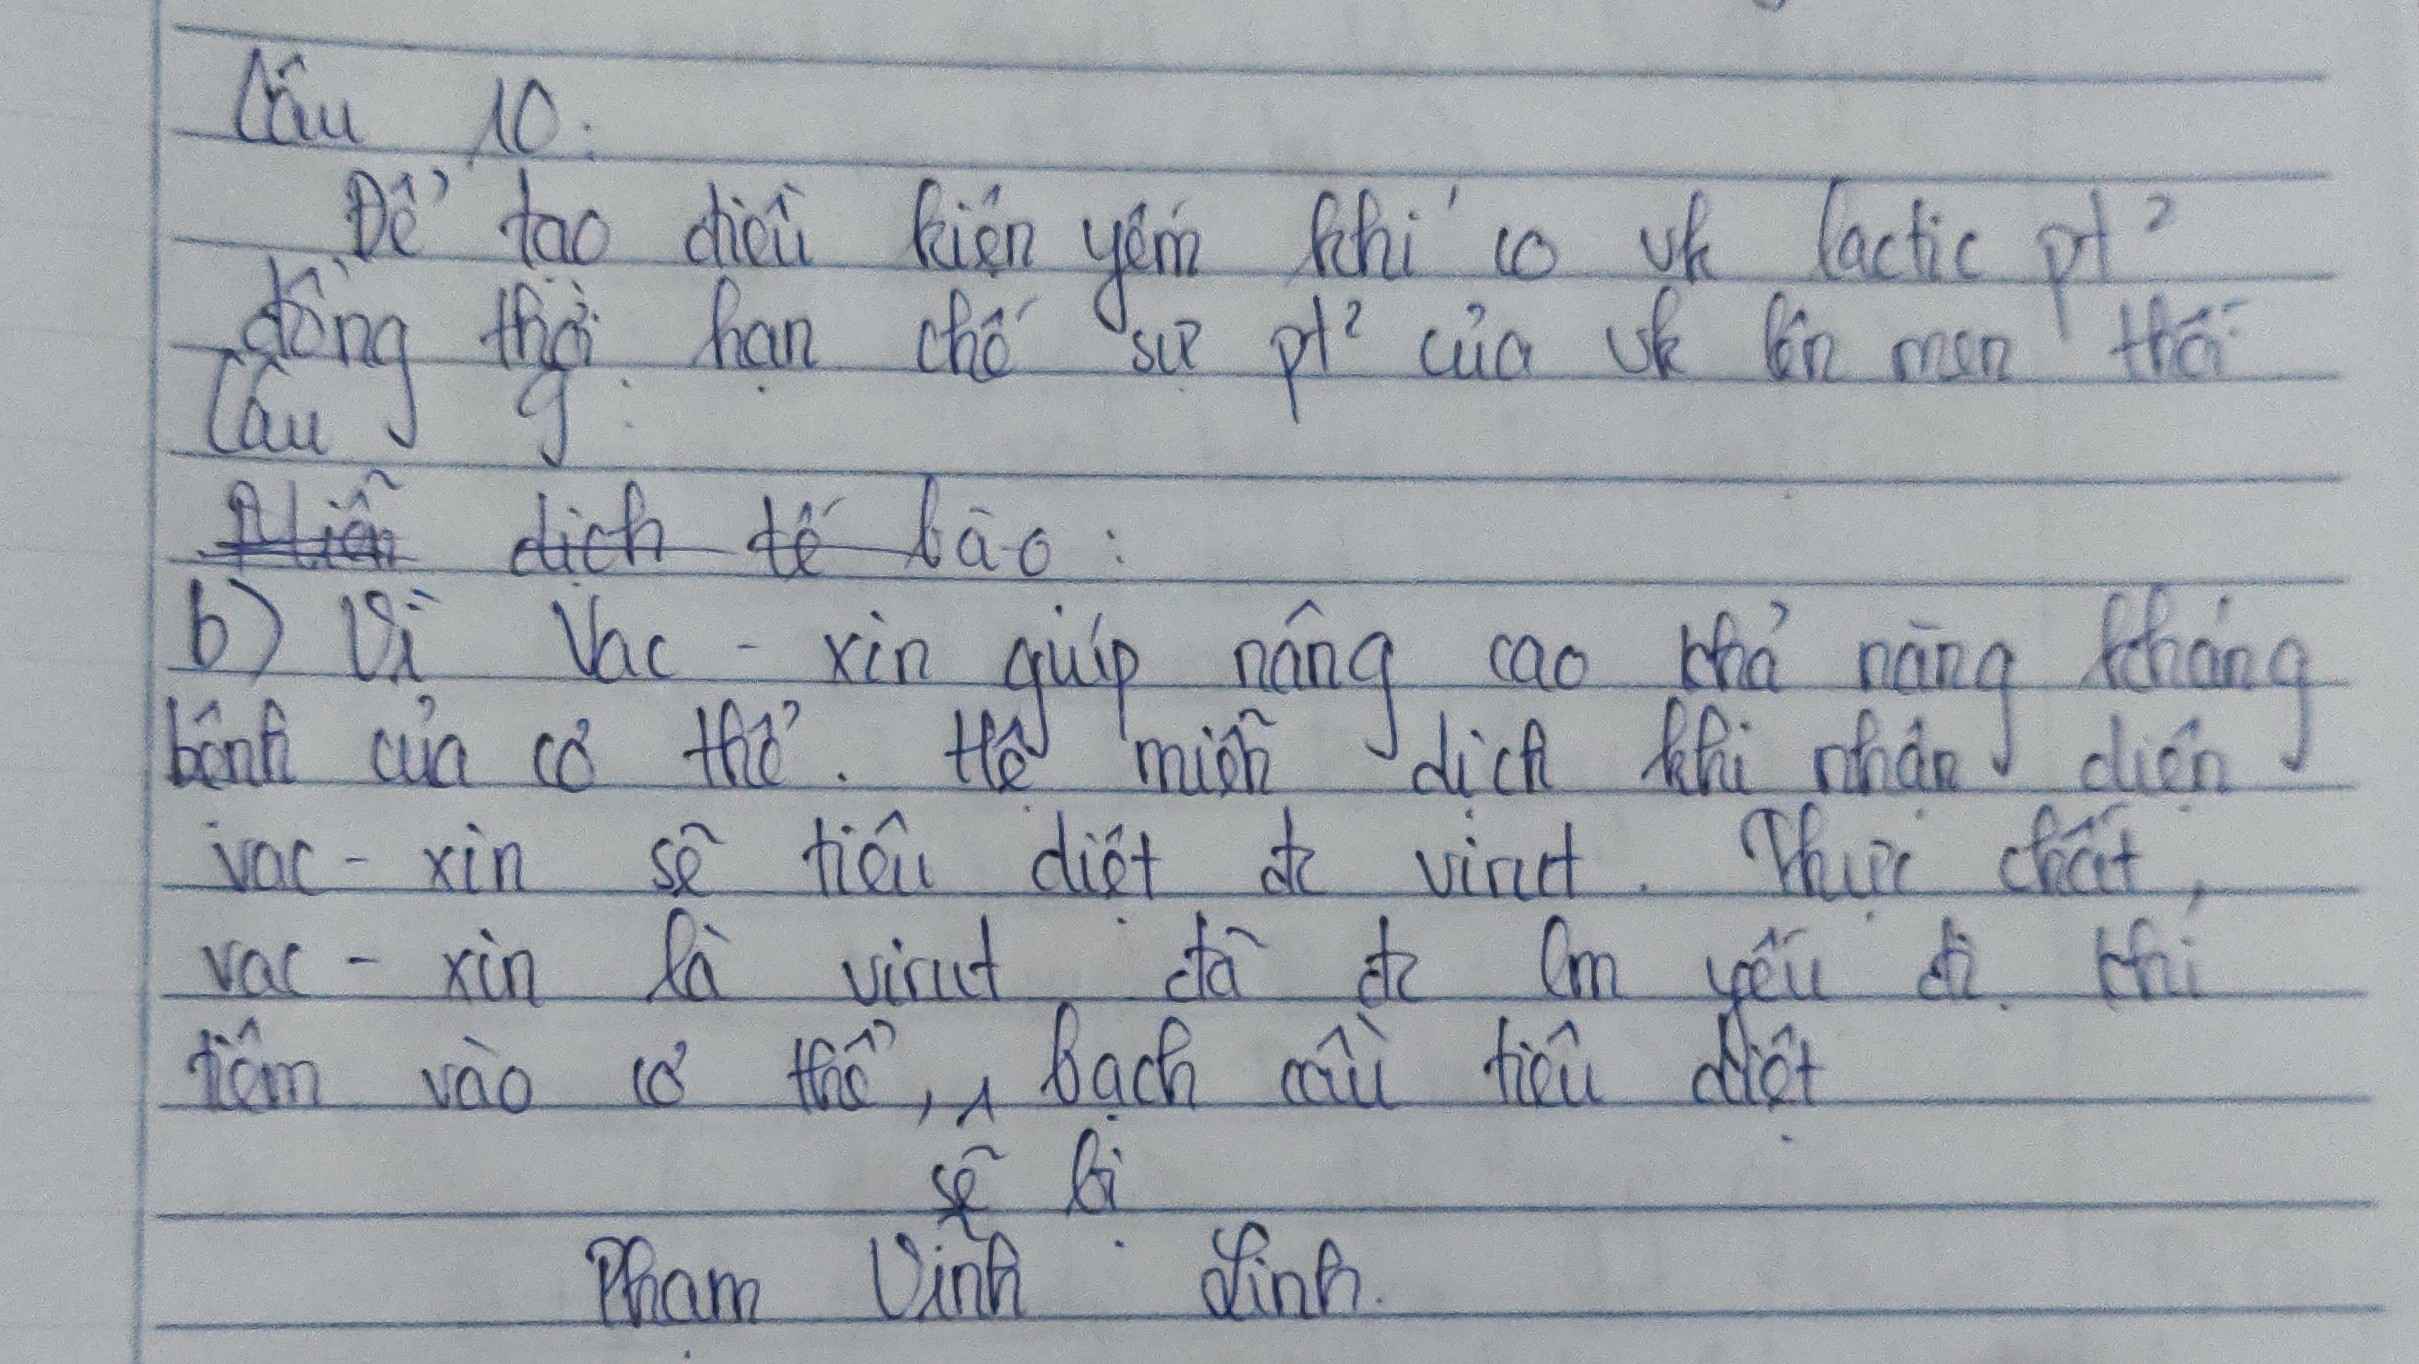 Câu 10:
Để tạo điều kiện yếm khí co vk lactic pt²
đồng thời hạn chế sự pt² của vk lên men thối
Câu 9:
Miễn dịch tế bào:
b) Vì Vac - xin giúp nâng cao khả năng kháng
bệnh của cơ thể. Hệ miễn dịch khi nhận diện
vac - xin sẽ tiêu diệt đc virut. Thực chất,
vac - xin là virut đã đc lm yếu đi. khi
tiêm vào cơ thể, ^ bạch cầu tiêu diệt
sẽ bị
Phạm Vinh Linh.